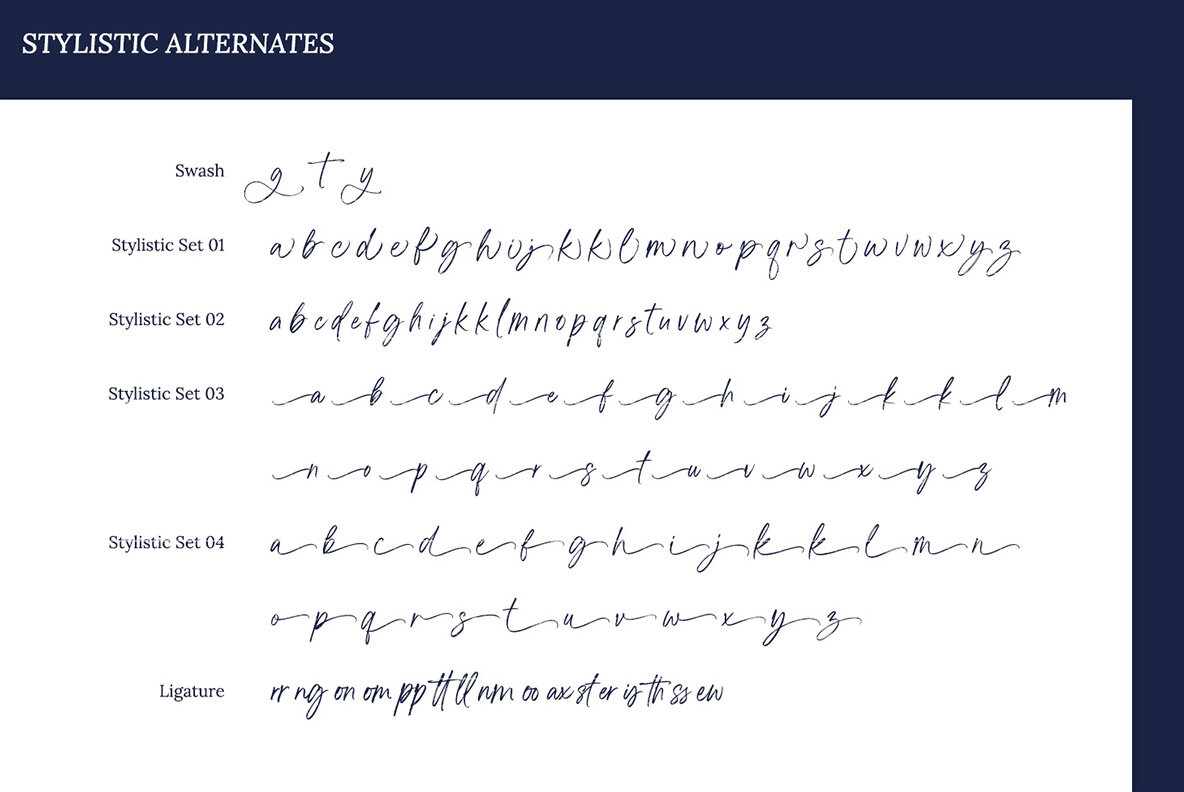 STYLISTIC ALTERNATES
Swash g t y
Stylistic Set 01 a b c d e f g h i j k k l m n o p q r s t u v w x y z
Stylistic Set 02 a b c d e f g h i j k k l m n o p q r s t u v w x y z
Stylistic Set 03 a b c d e f g h i j k k l m
n o p q r s t u v w x y z
Stylistic Set 04 a b c d e f g h i j k k l m n
o p q r s t u v w x y z
Ligature rr ng on om pp tt ll nm oo ax st er is th ss ew